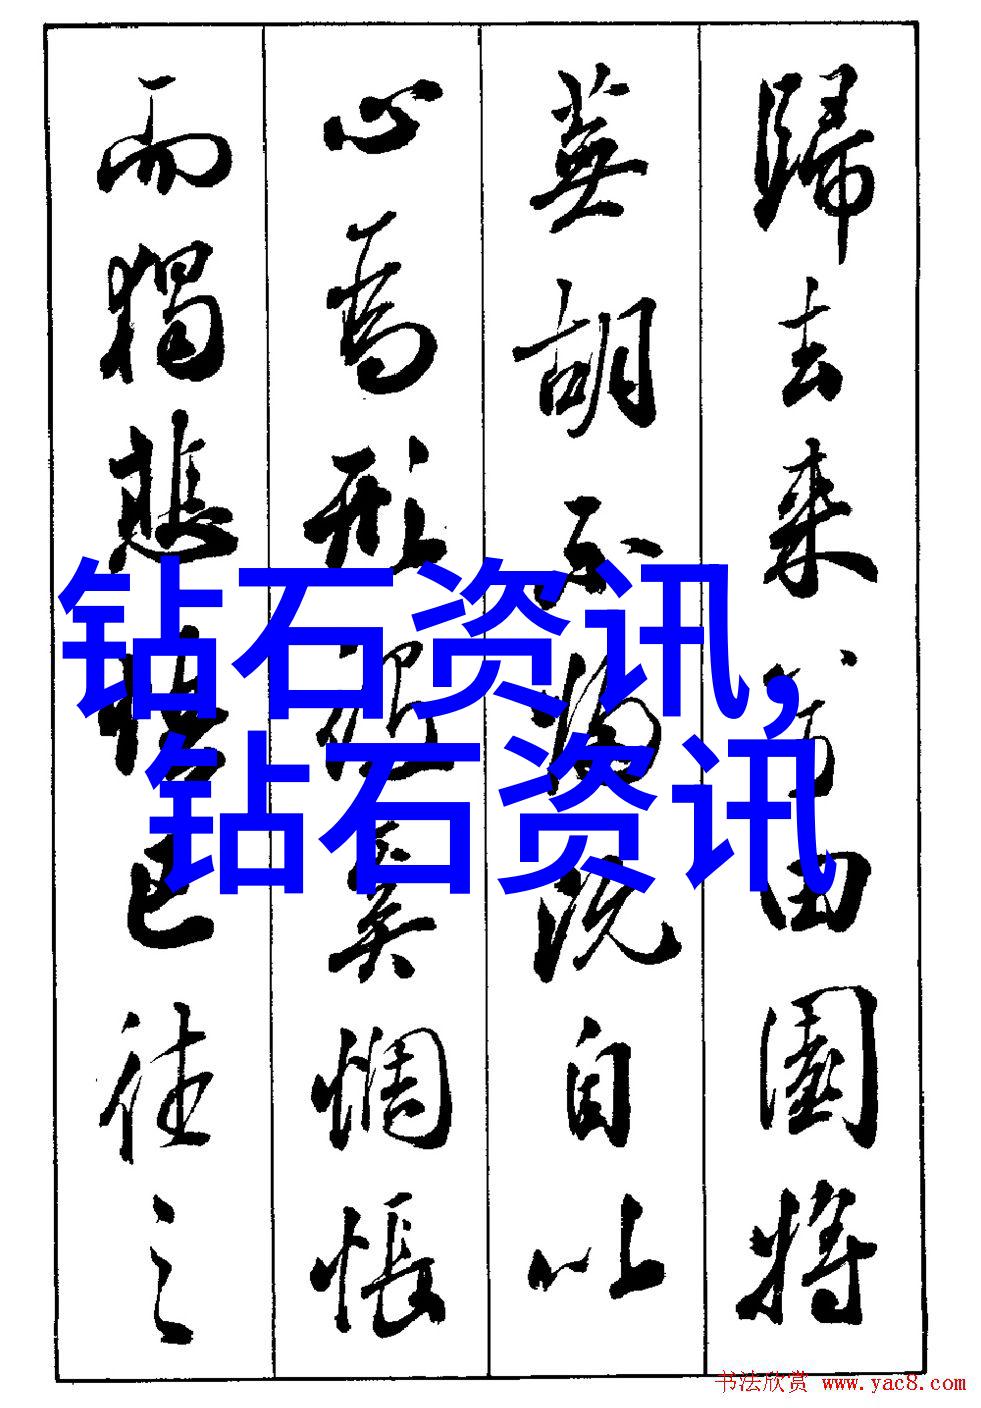 歸去来兮田園將
蕪胡不歸既自以
心為形役奚惆悵
而獨悲悟已往之
钻石资讯,
钻石资讯
书法欣赏 www.yac8.com